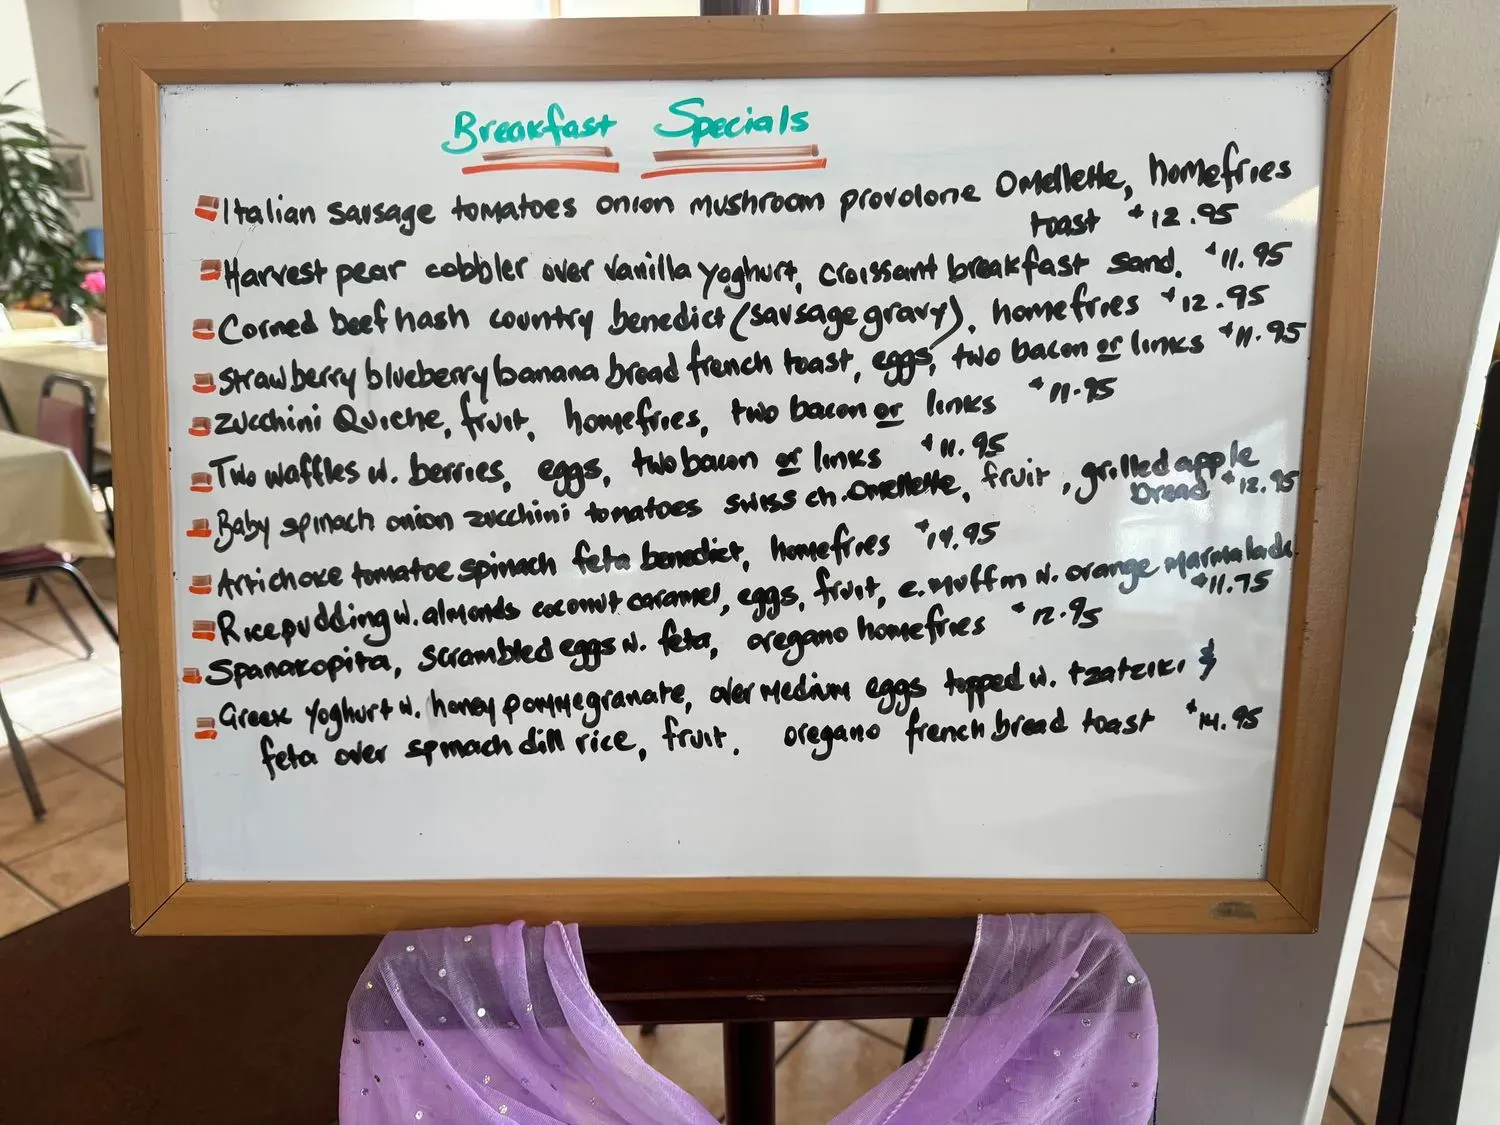 Breakfast Specials
Italian sausage tomatoes onion mushroom provolone Omellette, homefries
toast $12.95
Harvest pear cobbler over vanilla yoghurt, croissant breakfast sand. $11.95
Corned beef hash country benedict (sausage gravy), homefries $12.95
strawberry blueberry banana bread french toast, eggs, two bacon or links $11.95
zucchini Quiche, fruit, homefries, two bacon or links $11.95
Two waffles w. berries, eggs, two bacon or links $11.95
Baby spinach onion zucchini tomatoes swiss ch. Omellette, fruit, grilled apple
bread $12.95
Artichoke tomatoe spinach feta benedict, homefries $14.95
Rice pudding w. almonds coconut caramel, eggs, fruit, e. muffin w. orange marmalade
$11.75
Spanakopita, scrambled eggs w. feta, oregano homefries $12.95
Greek Yoghurt w. honey pommegranate, over medium eggs topped w. tzatziki &
feta over spinach dill rice, fruit, oregano french bread toast $14.95